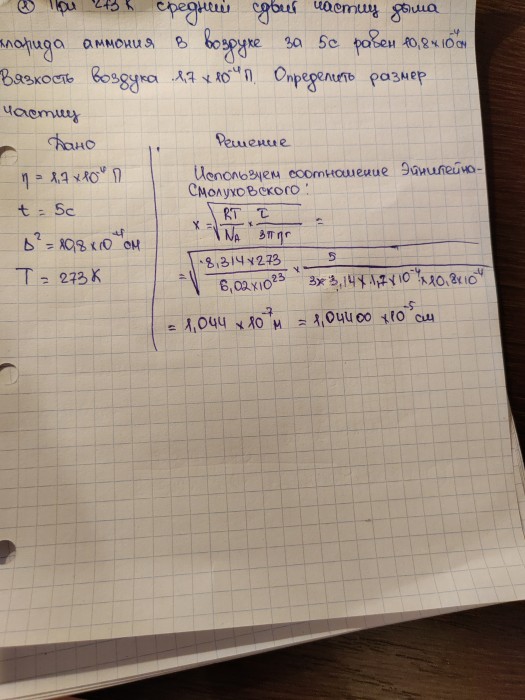 ② При 273 К средний сдвиг частиц дыма
хлорида аммония в воздухе за 5с равен 10,8×10⁻⁴ см
Вязкость воздуха 1,7×10⁻⁴ П. Определить размер
частиц
Дано
Решение
η = 1,7×10⁻⁴ П
t = 5с
Δ² = 10,8×10⁻⁴ см
T = 273К
Используем соотношение Эйнштейна-
Смолуховского:
x = √(RT/N_A × τ/3πηr) =
= √(8,314×273/6,02×10²³ × 5/3×3,14×1,7×10⁻⁴×10,8×10⁻⁴)
= 1,044 × 10⁻⁷ м = 1,04400 ×10⁻⁵ см